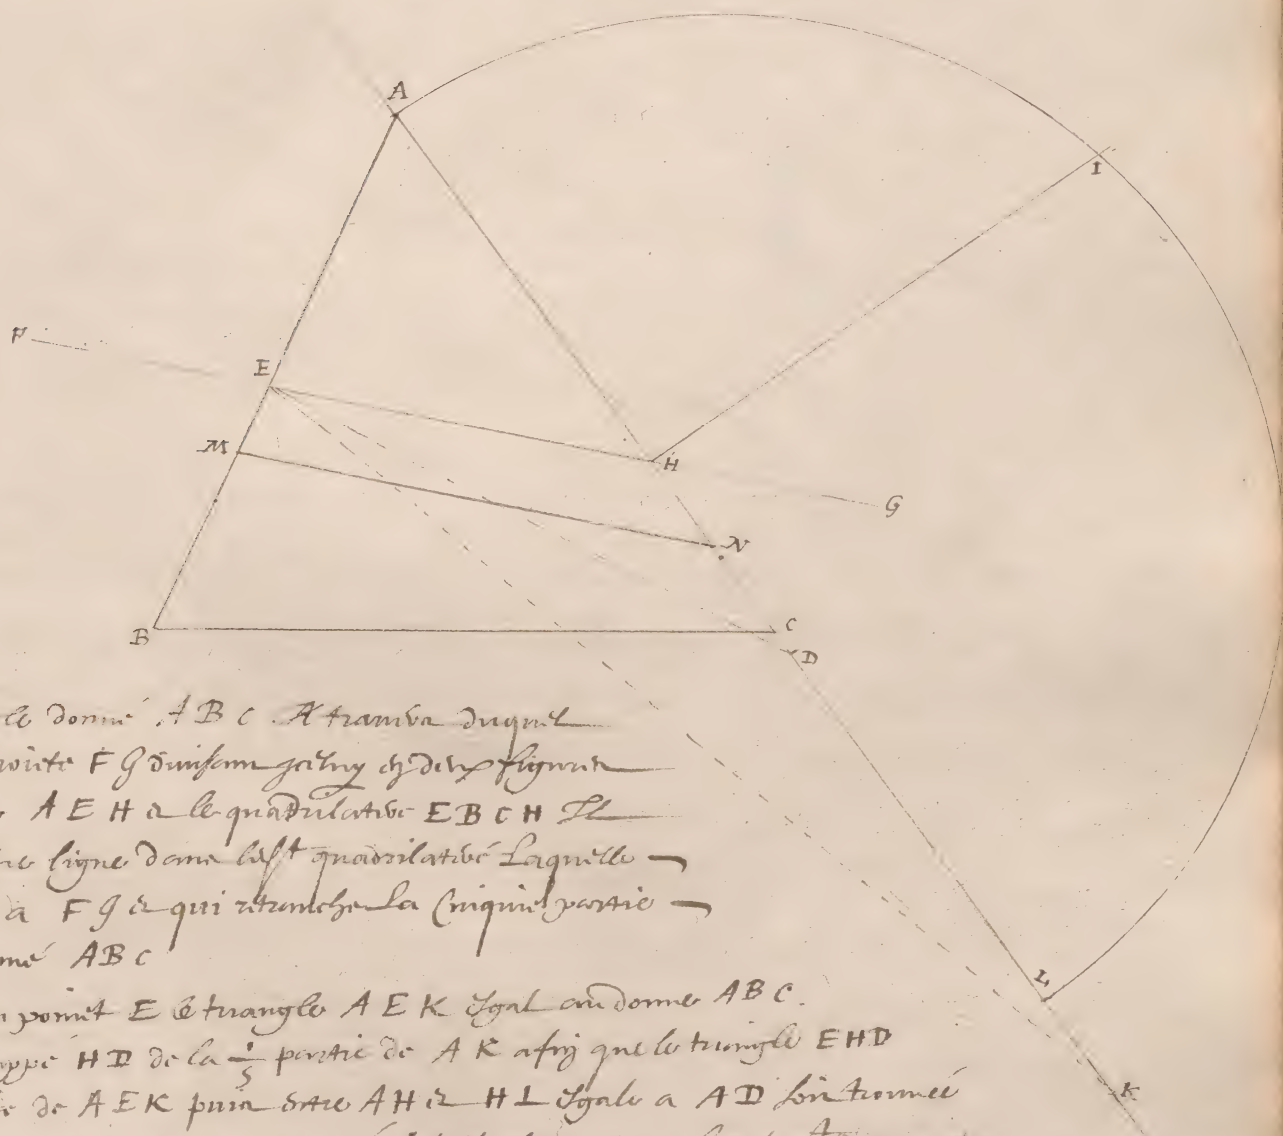 A
I
F
E
M
H
G
N
B
C
D
le donné ABC. A travers duquel
FG divisant iceluy en deux figures
AEH & le quadrilatere EBCH Il
ligne dans quadrilateré Laquelle
a FG & qui retranche La Cinquie partie
ABC
L
point E le triangle AEK esgal au donné ABC.
HD de la 1/5 partie de AK afin que le triangle EHD
K
de AEK puis entre AH & HL esgale a AD soit trouvée